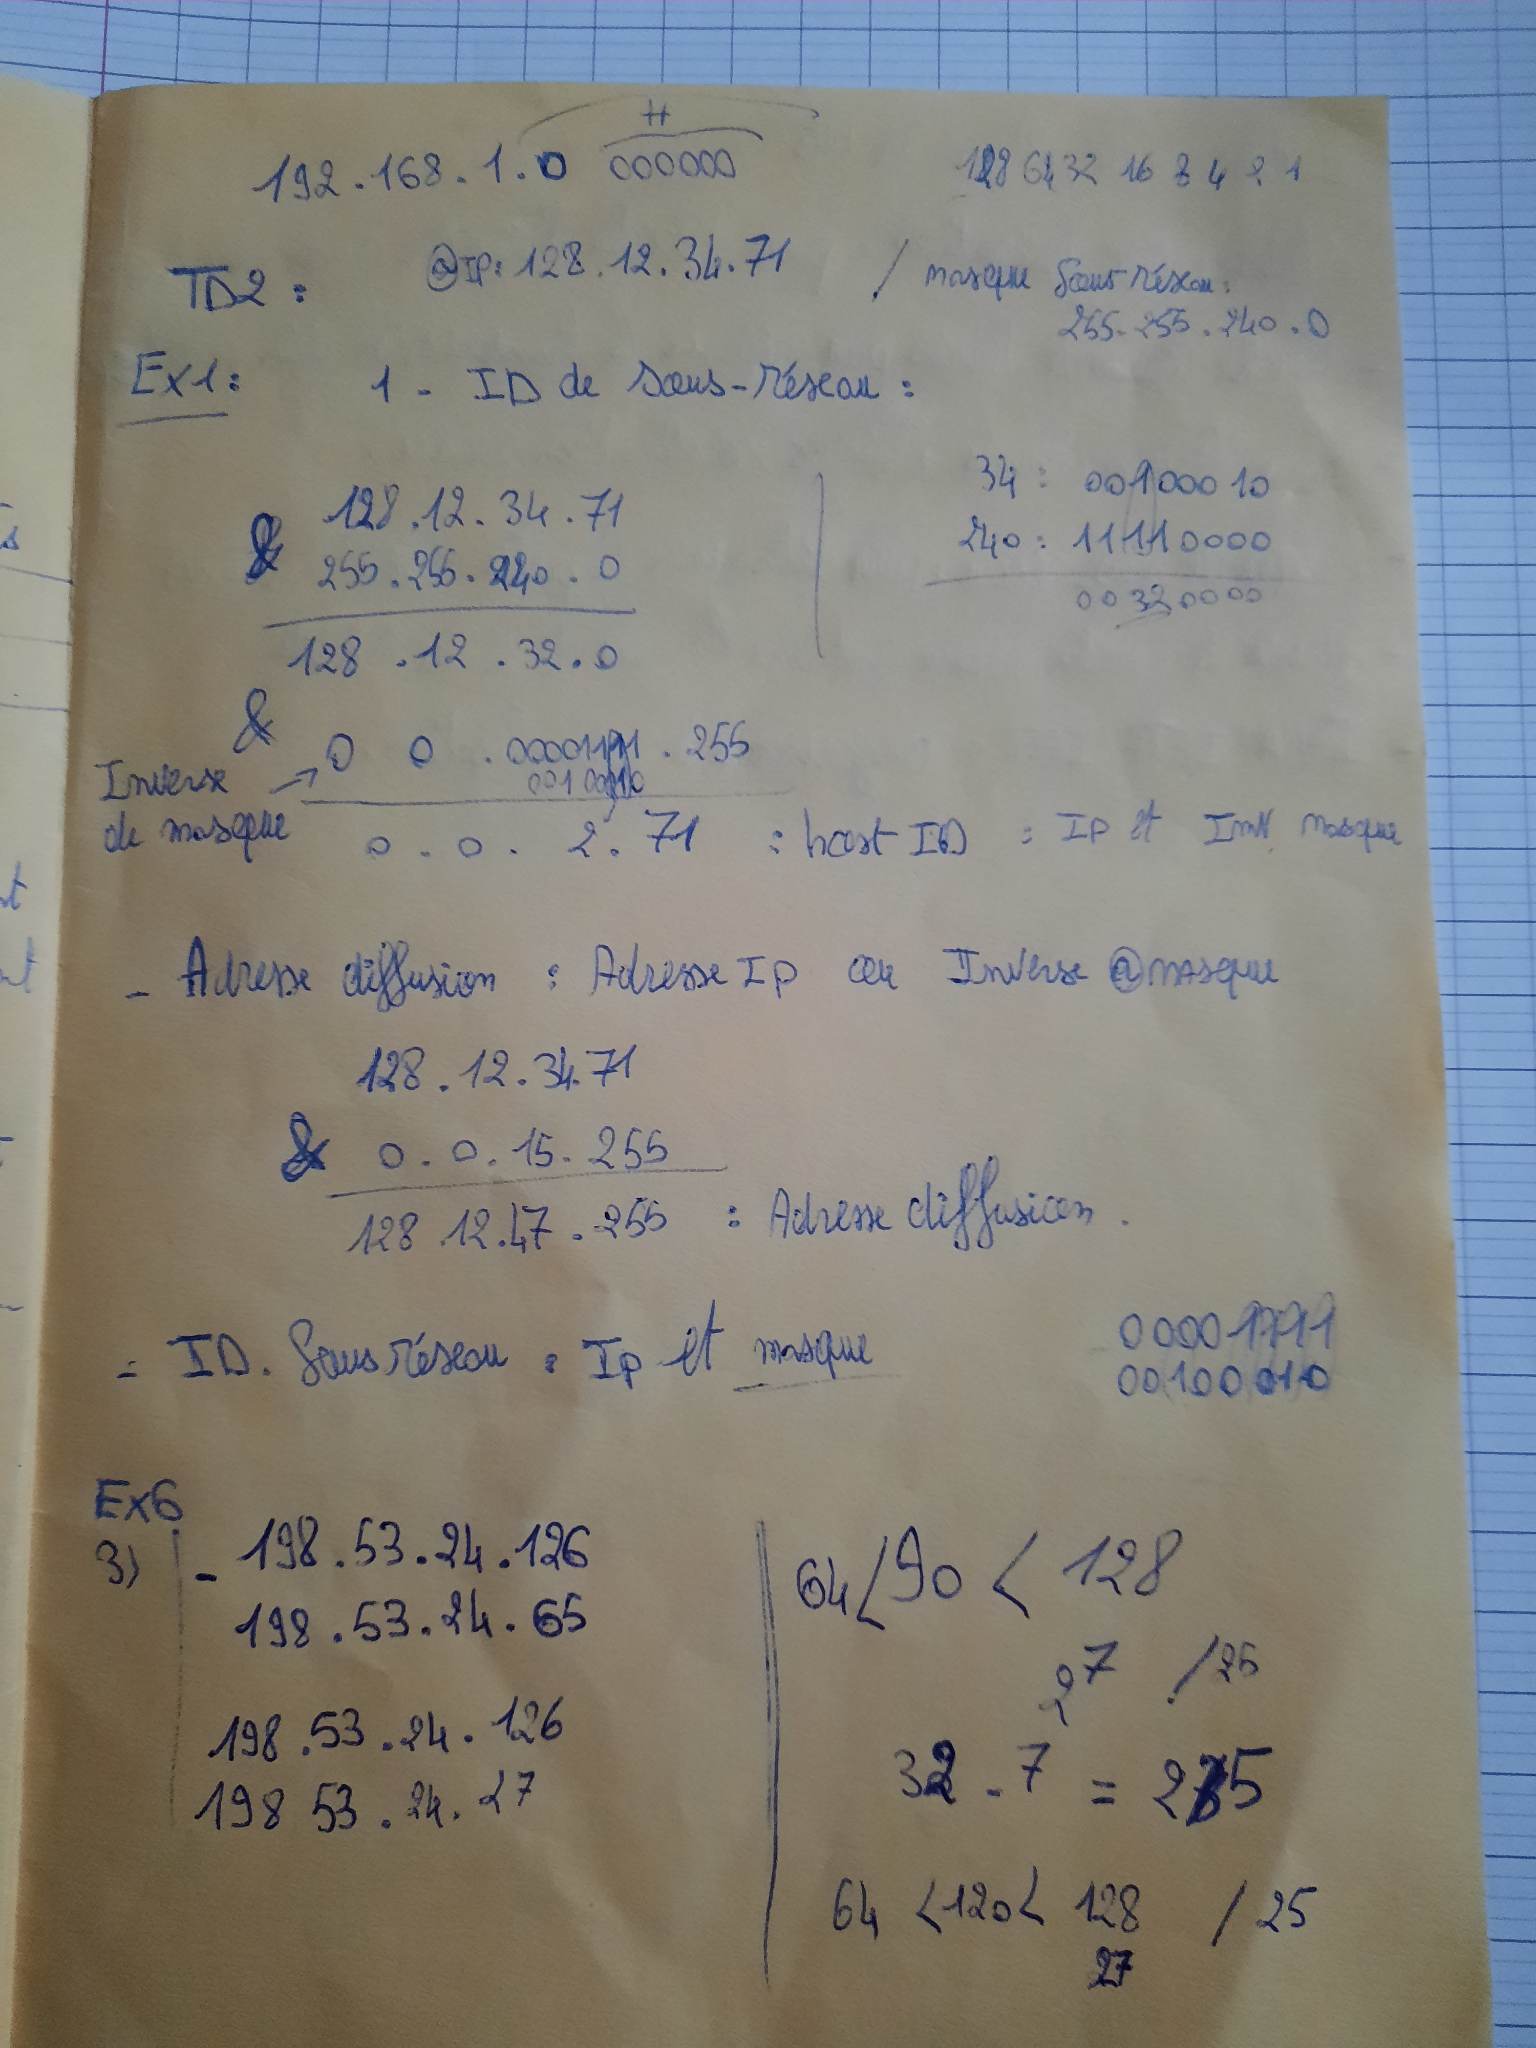 H
192.168.1.0 000000
128 64 32 16 8 4 2 1
TD2 : @IP: 128.12.34.71 / masque Sous réseau:
255.255.240.0
Ex1: 1 - ID de Sous-réseau :
128.12.34.71
& 255.255.240.0
128.12.32.0
34 : 00100010
240 : 11110000
00320000
&
Inverse de masque → 0 0 .00001111 . 255
00100010
0.0. 2.71 : host ID = IP et Inv. masque
- Adresse diffusion : Adresse Ip ou Inverse @masque
128.12.34.71
& 0.0.15.255
128.12.47.255 : Adresse diffusion.
- ID. Sous réseau : Ip et masque
00001111
00100010
Ex6
3) - 198.53.24.126
198.53.24.65
198.53.24.126
198 53.24.27
64 < 90 < 128
2^7 /25
32 - 7 = 25
64 < 120 < 128 / 25
27